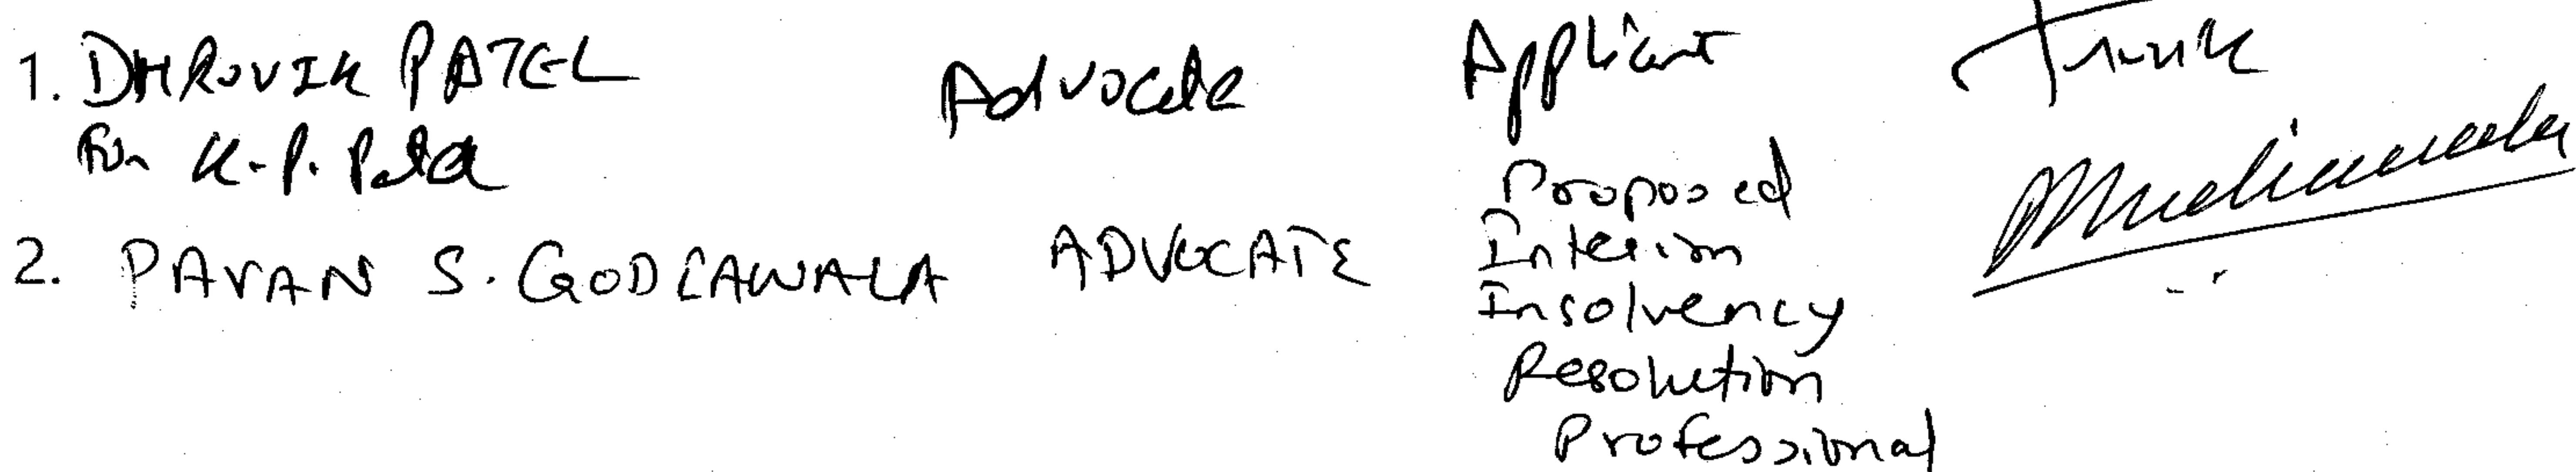 1. DHRUVIK PATEL Advocate Applicant
For K.P. Patel
Proposed
2. PAVAN S. GODIAWALA ADVOCATE Interim
Insolvency
Resolution
Professional